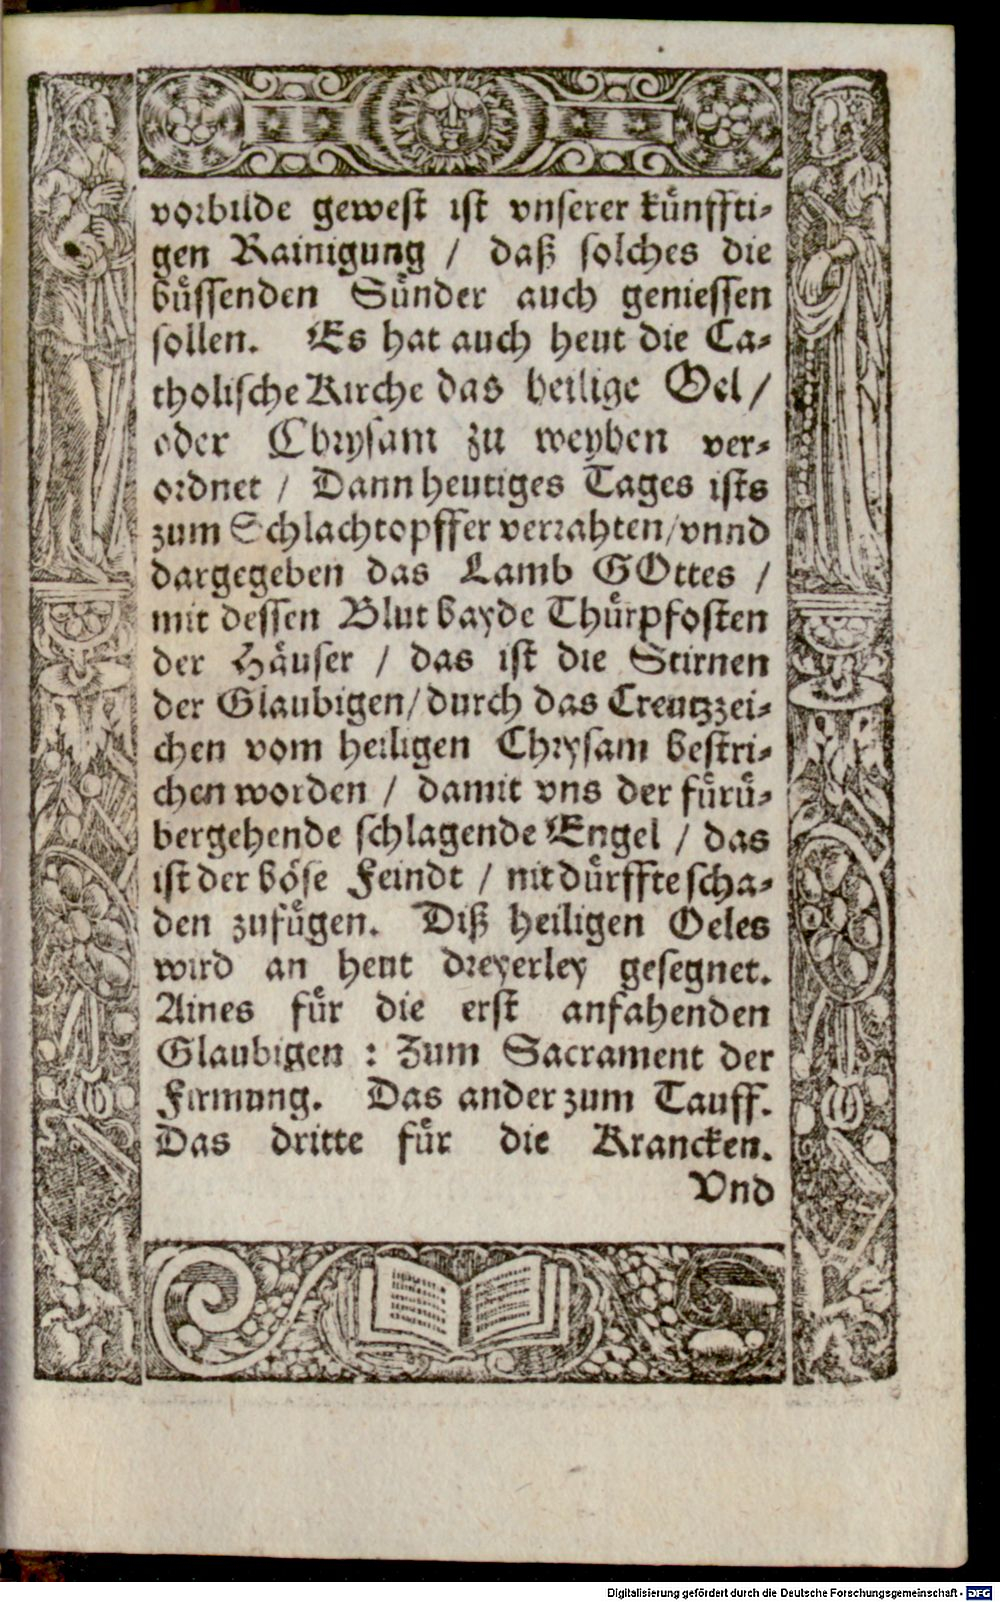 vorbilde gewest ist vnserer künffti-
gen Rainigung / daß solches die
büssenden Sünder auch geniessen
sollen. Es hat auch heut die Ca-
tholische Kirche das heilige Oel /
oder Chrysam zu weyhen ver-
ordnet / Dann heutiges Tages ists
zum Schlachtopffer verrahten / vnnd
dargegeben das Lamb GOttes /
mit dessen Blut bayde Thürpfosten
der Häuser / das ist die Stirnen
der Glaubigen / durch das Creutzzei-
chen vom heiligen Chrysam bestri-
chen worden / damit vns der fürü-
bergehende schlagende Engel / das
ist der böse Feindt / nit dürffte scha-
den zufügen. Diß heiligen Oeles
wird an heut dreyerley gesegnet.
Aines für die erst anfahenden
Glaubigen : Zum Sacrament der
Firmung. Das ander zum Tauff.
Das dritte für die Krancken.
Vnd
Digitalisierung gefördert durch die Deutsche Forschungsgemeinschaft - DFG